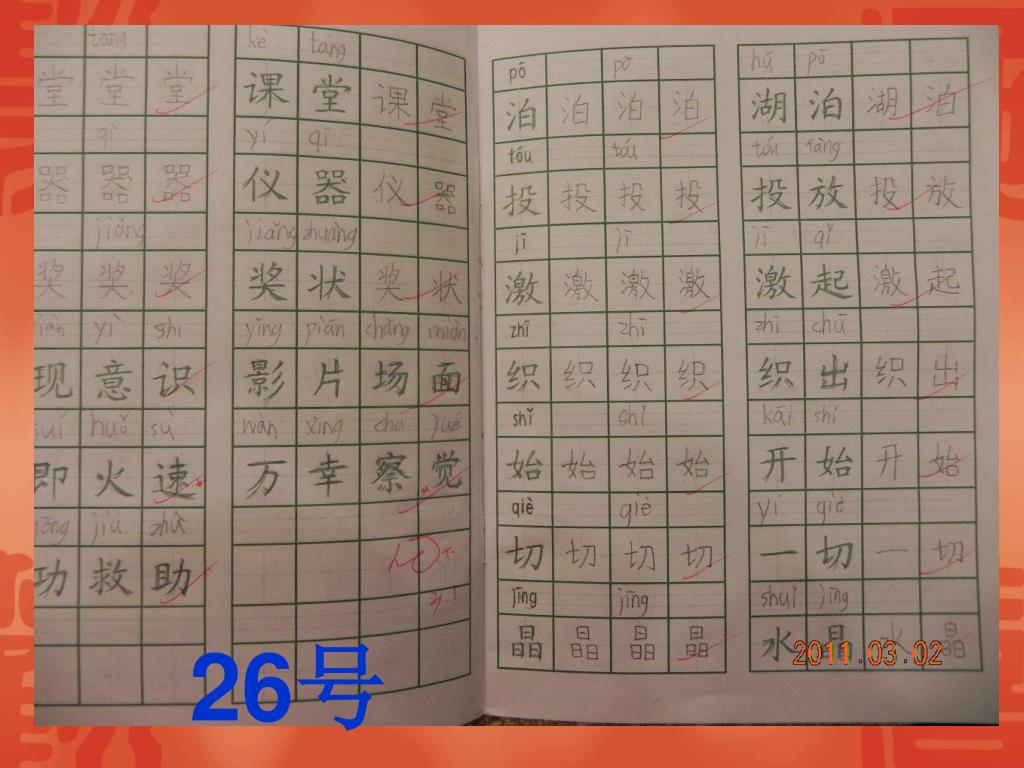 táng
堂 堂 堂
qì
器 器 器
jiǎng
奖 奖 奖
yì shi
现 意 识
huǒ sù
即 火 速
jiù zhù
功 救 助
kè táng
课 堂 课 堂
yí qì
仪 器 仪 器
jiǎng zhuàng
奖 状 奖 状
yǐng piān chǎng miàn
影 片 场 面
wàn xìng chá jué
万 幸 察 觉
pō pō
泊 泊 泊 泊
tóu tóu
投 投 投 投
jī jī
激 激 激 激
zhī zhī
织 织 织 织
shǐ shǐ
始 始 始 始
qiè qiè
切 切 切 切
jīng jīng
晶 晶 晶 晶
hú pō
湖 泊 湖 泊
tóu fàng
投 放 投 放
jī qǐ
激 起 激 起
zhī chū
织 出 织 出
kāi shǐ
开 始 开 始
yí qiè
一 切 一 切
shuǐ jīng
水 晶 水 晶
2011.03.02
26号